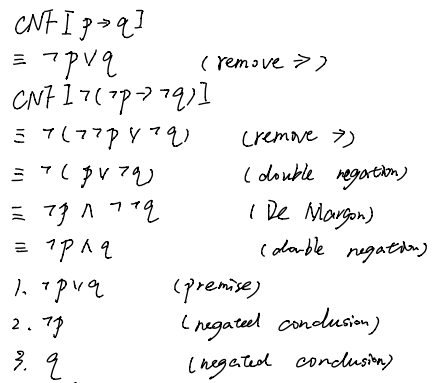 CNF[p→q]
≡ ¬p∨q (remove →)
CNF[¬(¬p→¬q)]
≡ ¬(¬¬p∨¬q) (remove →)
≡ ¬(p∨¬q) (double negation)
≡ ¬p∧¬¬q (De Margon)
≡ ¬p∧q (double negation)
1. ¬p∨q (premise)
2. ¬p (negated conclusion)
3. q (negated conclusion)